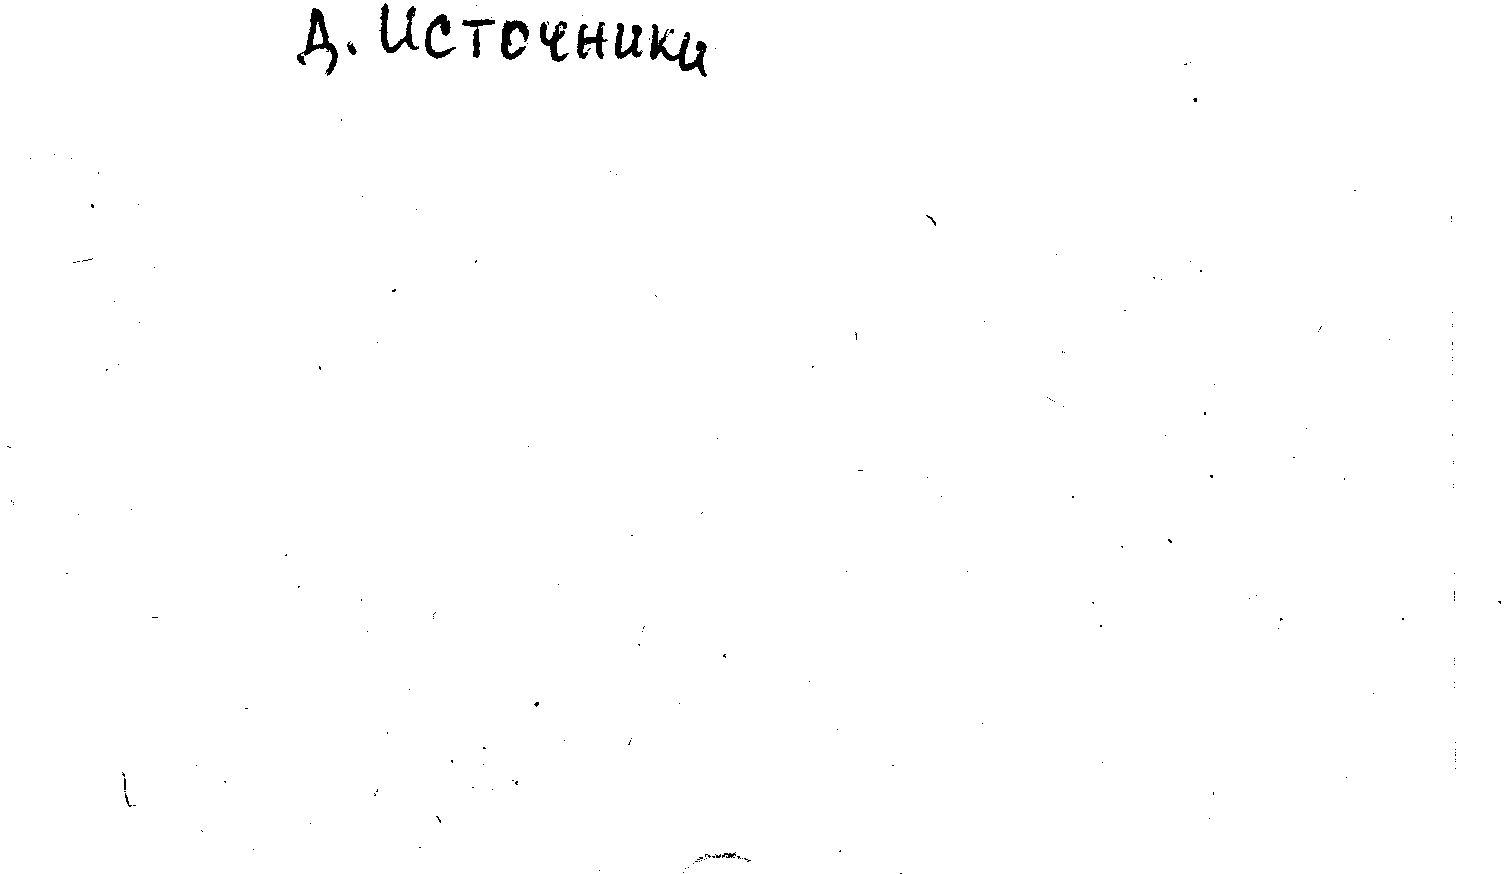 Д. Источники